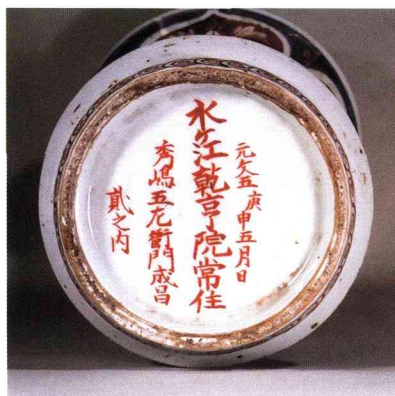 元文五庚申五月日
水ケ江乾亨院常住
秀嶋五左衛門成昌
貳之内